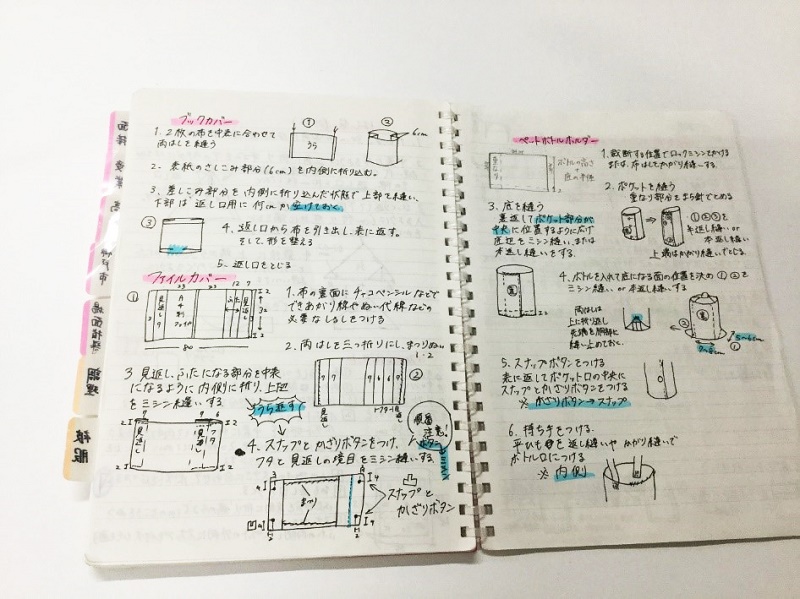 ブックカバー
1. 2枚の布を中表に合わせて
両はしを縫う
①
うら
②
6cm
2. 表紙のさしこみ部分(6cm)を内側に折り込む。
3. 差しこみ部分を内側に折り込んだ状態で上部を縫い、
下部は返し口用に何cmか空けておく
③
4. 返し口から布を引き出し、表に返す。
そして、形を整える
5. 返し口をとじる
ファイルカバー
①
80
1. 布の裏面にチャコペンシルなどで
できあがり線やぬい代線などの
必要なしるしをつける
2. 両はしを三つ折りにし、まつりぬい
1・2
②
3 見返し、ふたになる部分を中表
になるように内側に折り、上辺
をミシン縫いする
うら返す
見返し
フタ
順番
注意!
4. スナップとかざりボタンをつけ、
フタと見返しの境目をミシン縫いする
まつり
スナップと
かざりボタン
ペットボトルホルダー
ボトルの高さ
+
底の半径
1. 裁断する位置でロックミシンをかける
または、布はしをかがり縫いする。
2. ポケットを縫う
重なり部分をまち針でとめる
①②③を
半返し縫いor
本返し縫い
上端はかがり縫いでとじる。
3. 底を縫う
裏返してポケット部分が
中央に位置するように広げ
底辺をミシン縫い、または
本返し縫いをする。
4. ボトルを入れて底になる面の位置を決め①②を
ミシン縫いor本返し縫いする
両はしは
上に折り返し
縫い止めておく。
②
①
5. スナップボタンをつける
表に返してポケット口の中央に
スナップとかざりボタンをつける
※かざりボタン→スナップ
6. 持ち手をつける
平ひもを返し縫いやかがり縫いで
ボトル口につける
※内側
面接
場面指導
調理
被服